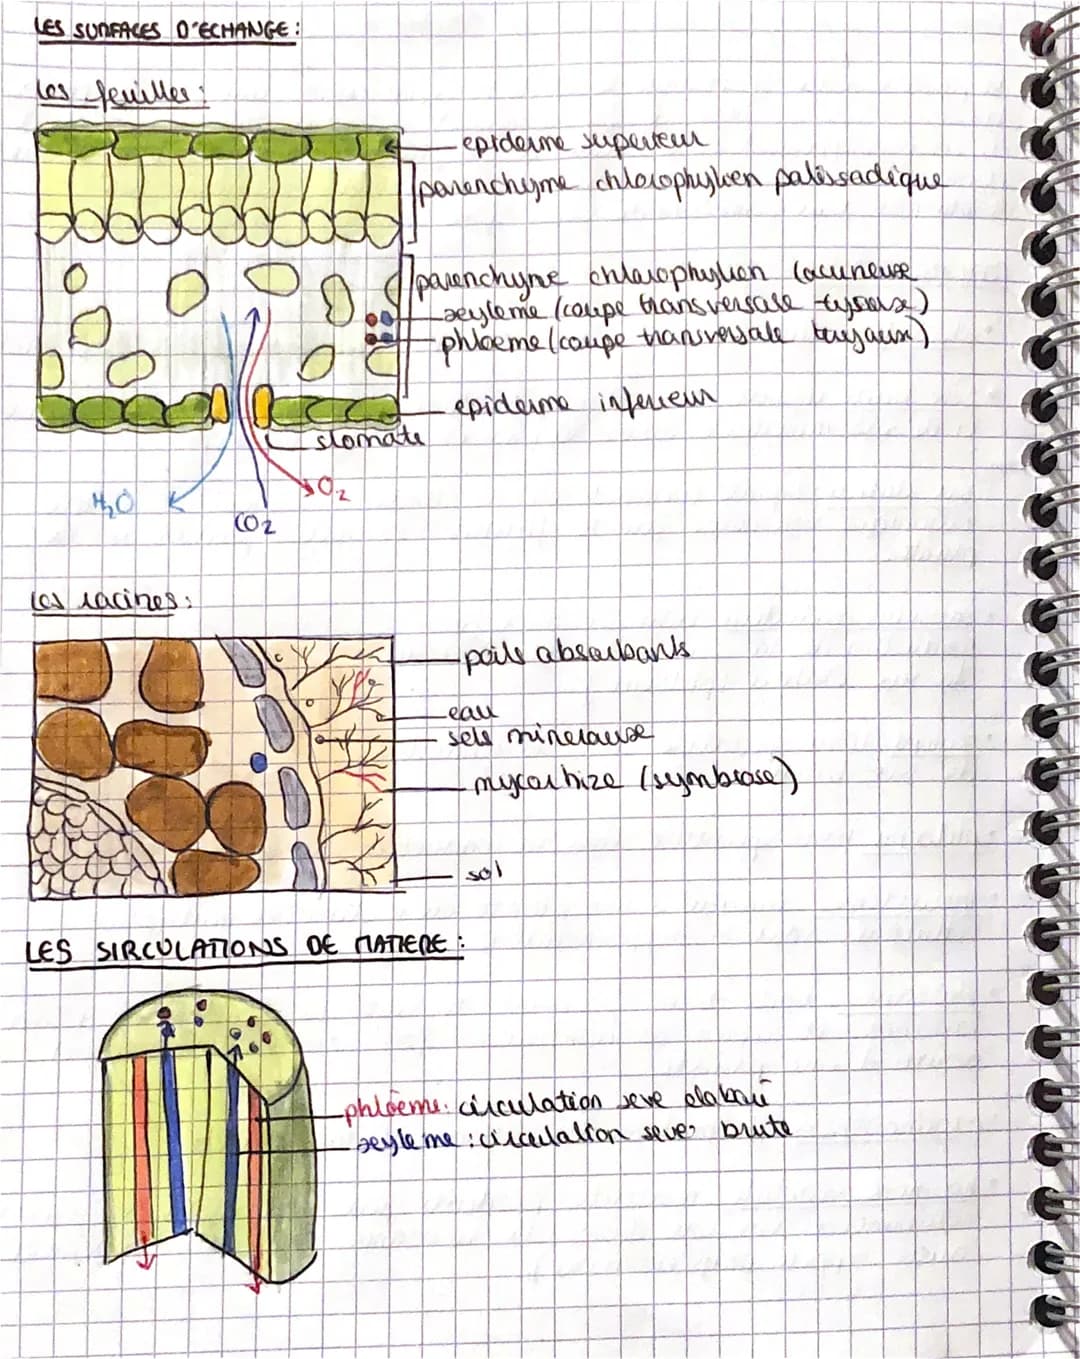 LES SURFACES D'ECHANGE :
Les feuilles :
epiderme superieur
parenchyme chlorophylien palissadique
parenchyme chlorophylien lacuneuse
xyleme (coupe transversale tuyaux)
phloeme (coupe transversale tuyaux)
epiderme inferieur
stomate
H2O
O2
CO2
Les racines :
poils absorbants
eau
sels mineraux
mycorhize (symbiose)
sol
LES SIRCULATIONS DE MATIERE :
phloeme : circulation seve elaboré
xyleme : circulation seve brute